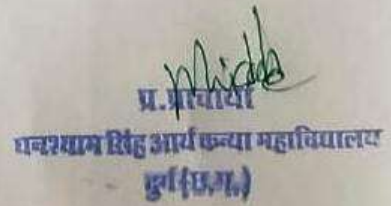 प्र.प्राचार्या
घनश्याम सिंह आर्य कन्या महाविद्यालय
दुर्ग (छ.ग.)